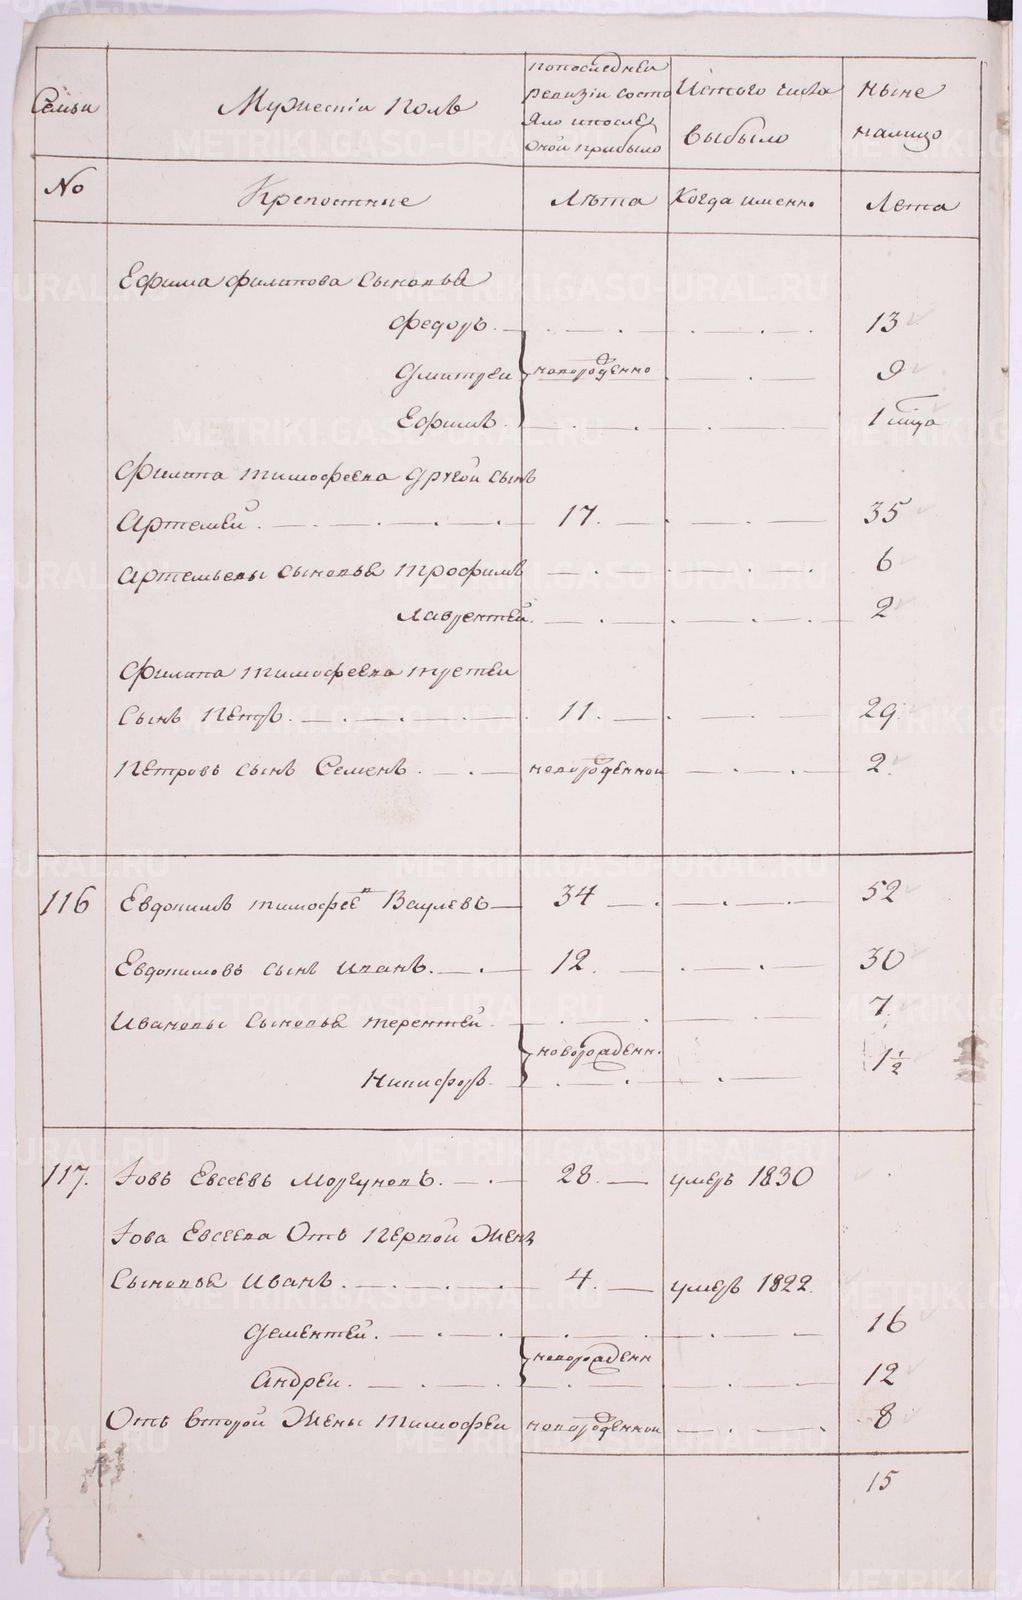 Семьи
Мужескiи полъ
попоследней
ревизiи состо
яло ипосле
оной прибыло
Истого числа
выбыло
ныне
налицо
No
Крепостные
Лѣта
Когда именно
Лета
Ефима филипова сыновья
Федоръ. 13
Дмитреи новорожденно 9
Ефимъ. 1 мѣца
Филипа тимофеева другой сынъ
Артемей. 17. 35
Артемьевы сыновья трофимъ 6
Лаврентей. 2
Филипа тимофеева третеи
сынъ Петръ. 11. 29.
Петровъ сынъ Семенъ. новорожденной 2.
116 Евдокимъ тимофеевъ Ваулевъ 34 52
Евдокимовъ сынъ иванъ. 12. 30
Ивановы сыновья терентей. 7.
новорожденн.
Никифоръ. 1½
117. Iовъ Евсеевъ Моргуновъ. 28. умеръ 1830
Iова Евсеева Отъ первой жены
Сыновья Иванъ. 4. умеръ 1822.
дементей. 16
новорожденн
андреи. 12
Отъ второй Жены Тимофеи новорожденной 8
15
METRIKI.GASO-URAL.RU